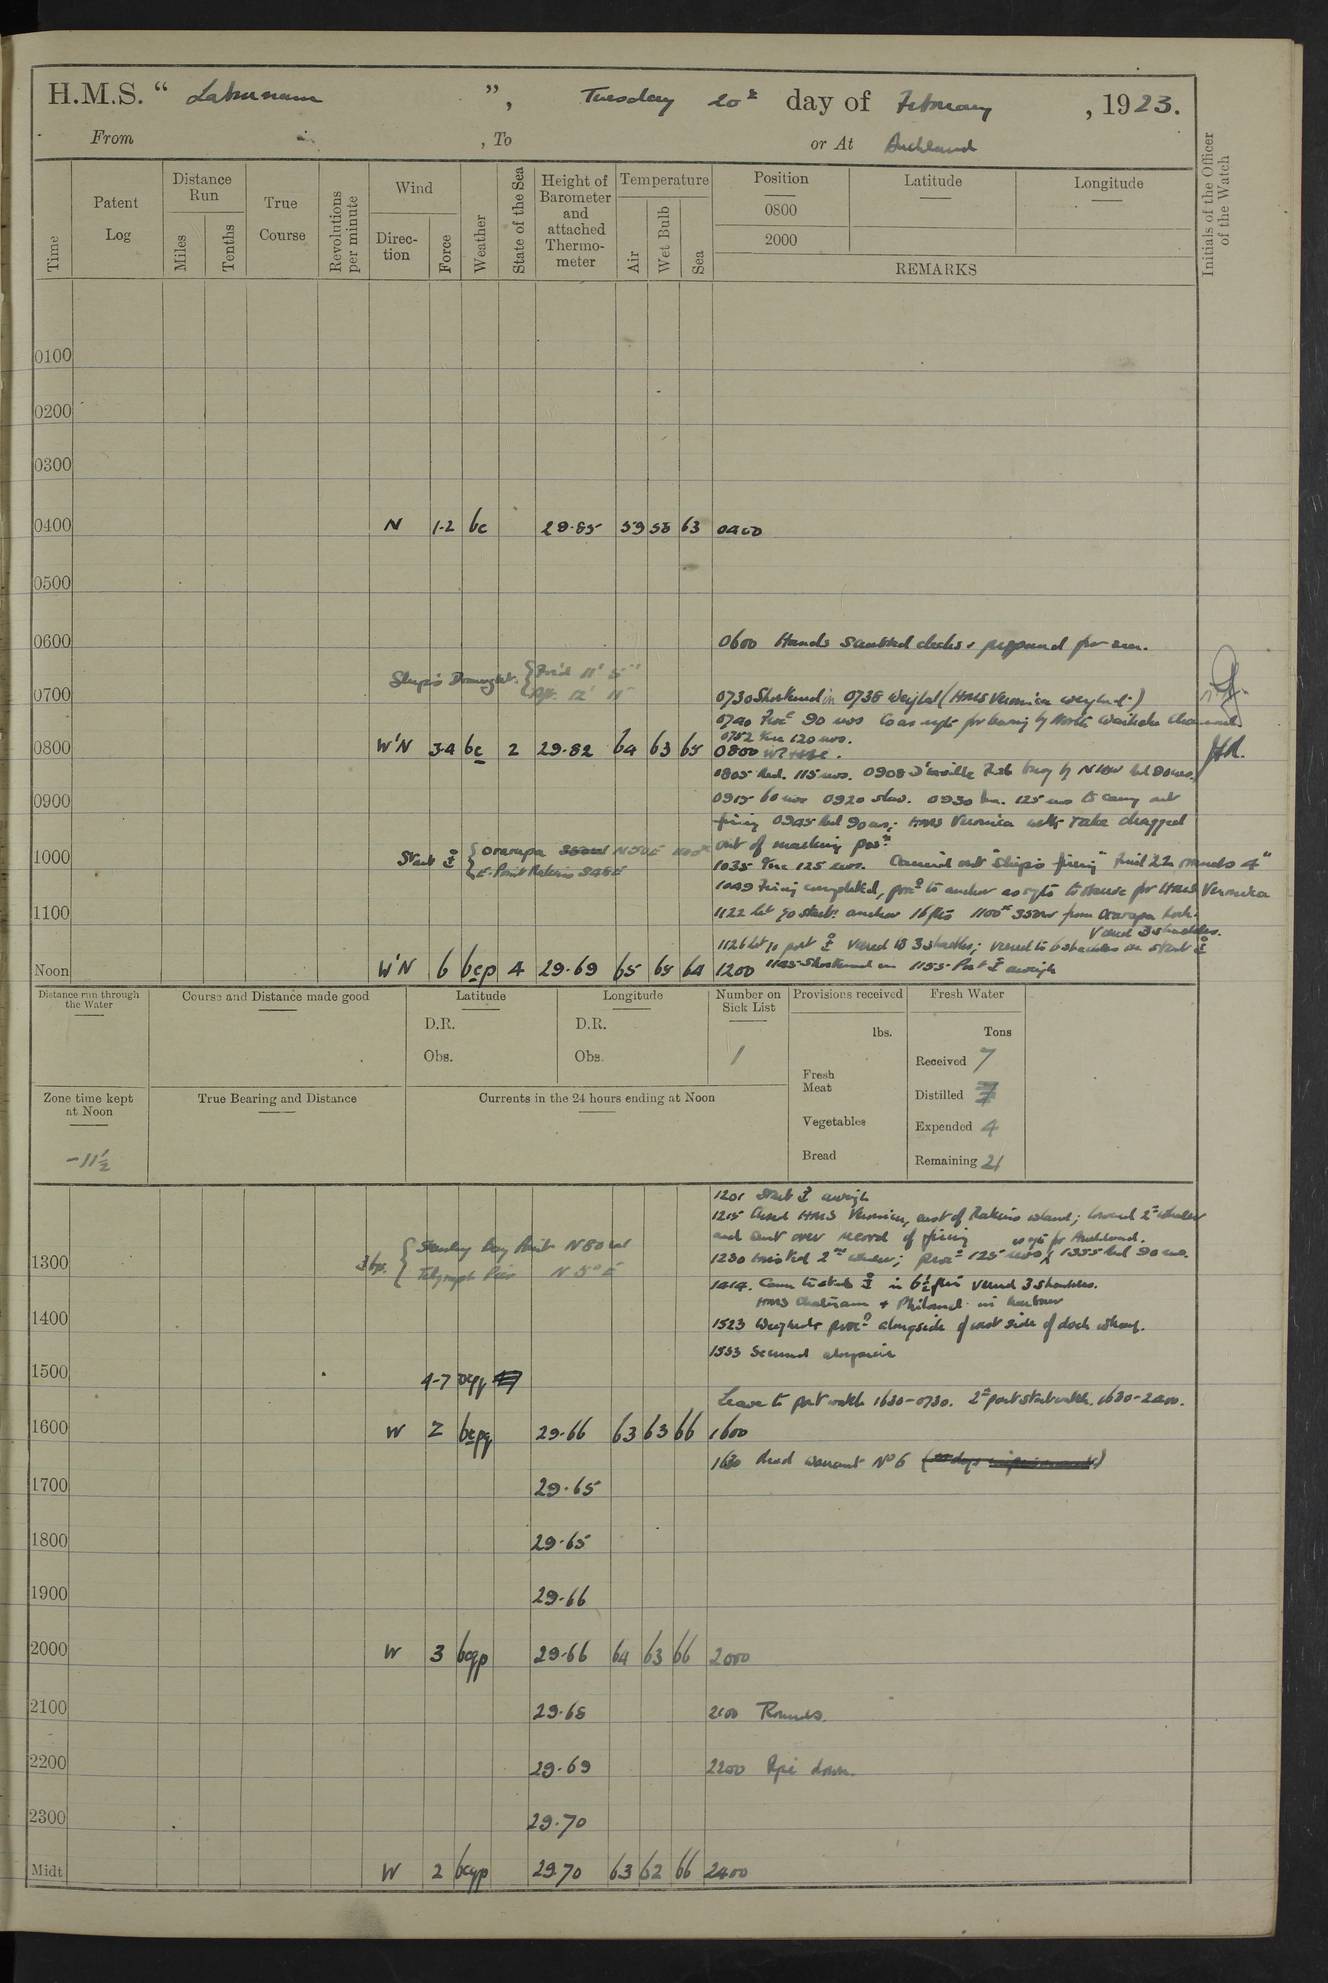 H.M.S. “ Laburnum ”, Tuesday 20th day of February, 1923.
From , To or At Auckland
Initials of the Officer of the Watch
Time
Patent Log
Distance Run
Miles
Tenths
True Course
Revolutions per minute
Wind
Direc-tion
Force
Weather
State of the Sea
Height of Barometer and attached Thermo-meter
Temperature
Air
Wet Bulb
Sea
Position Latitude Longitude
0800
2000
REMARKS
0100
0200
0300
0400 N 1-2 bc 29.85 59 58 63 0400
0500
0600 0600 Hands scrubbed decks & prepared for sea.
Ship's Draught. { For'd 11' 5"
Aft. 12' 11"
0700 0730 Shortened in 0738 Weighed (HMS Veronica weighed)
0740 Proc'd 90 revs Co as reqte for leaving by North Waiheke Channel
0752 Inc 120 revs.
0800 W'N 3-4 bc 2 29.82 64 63 65 0800
0805 Red. 115 revs. 0908 D'urville Rk buoy
0900 0915 60 revs 0920 slow. 0930 Inc. 125 revs to carry out
firing 0945 Red 90 revs; HMS Veronica with Target dragged
Starb { Orarapa N50E
E. Point Rakino S46E
out of marking pos'n
1000 1035 Inc 125 revs. Carried out "Ship's firing" fired 22 rounds 4"
1049 Firing completed, proc'd to anchor as reqte for HMS Veronica
1100 1122 let go starb'd anchor 16 fms 1100x S50W from Orarapa Rock.
Veered 3 shackles.
1126 let go port veered to 3 shackles; veered to 6 shackles on starb'd
Noon W'N 6 bcp 4 29.69 65 65 64 1200 1145 Shortened in 1155 Port aweigh
Distance run through the Water
Course and Distance made good
Latitude
D.R.
Obs.
Longitude
D.R.
Obs.
Number on Sick List
1
Provisions received
lbs.
Fresh Meat
Vegetables
Bread
Fresh Water
Tons
Received 7
Distilled
Expended 4
Remaining 21
Zone time kept at Noon
-11½
True Bearing and Distance
Currents in the 24 hours ending at Noon
1201 Starb'd aweigh
1215 Closed HMS Veronica, east of Rakino island; lowered 2nd whaler
and sent over record of firing as reqte for Auckland.
1230 Hoisted 2nd whaler; proc'd 125 revs 1355 Red 90 revs.
1300 { Stanley Bay Point N80W
Telegraph Pier N 5° E
1414. Came to starb'd in 6½ fms veered 3 shackles.
HMS Chatham & Philomel in harbour
1400 1523 Weighed & proc'd alongside of west side of dock wharf.
1533 Secured alongside
1500 4-7
Leave to port watch 1630-0730. 2nd part starb watch. 1630-2200.
1600 W 2 bcpq 29.66 63 63 66 1600
1630 Read Warrant No 6
1700 29.65
1800 29.65
1900 29.66
2000 W 3 bcqp 29.66 64 63 66 2000
2100 29.68 2100 Rounds.
2200 29.69 2200 Pipe down.
2300 29.70
Midt W 2 bcqp 29.70 63 62 66 2400